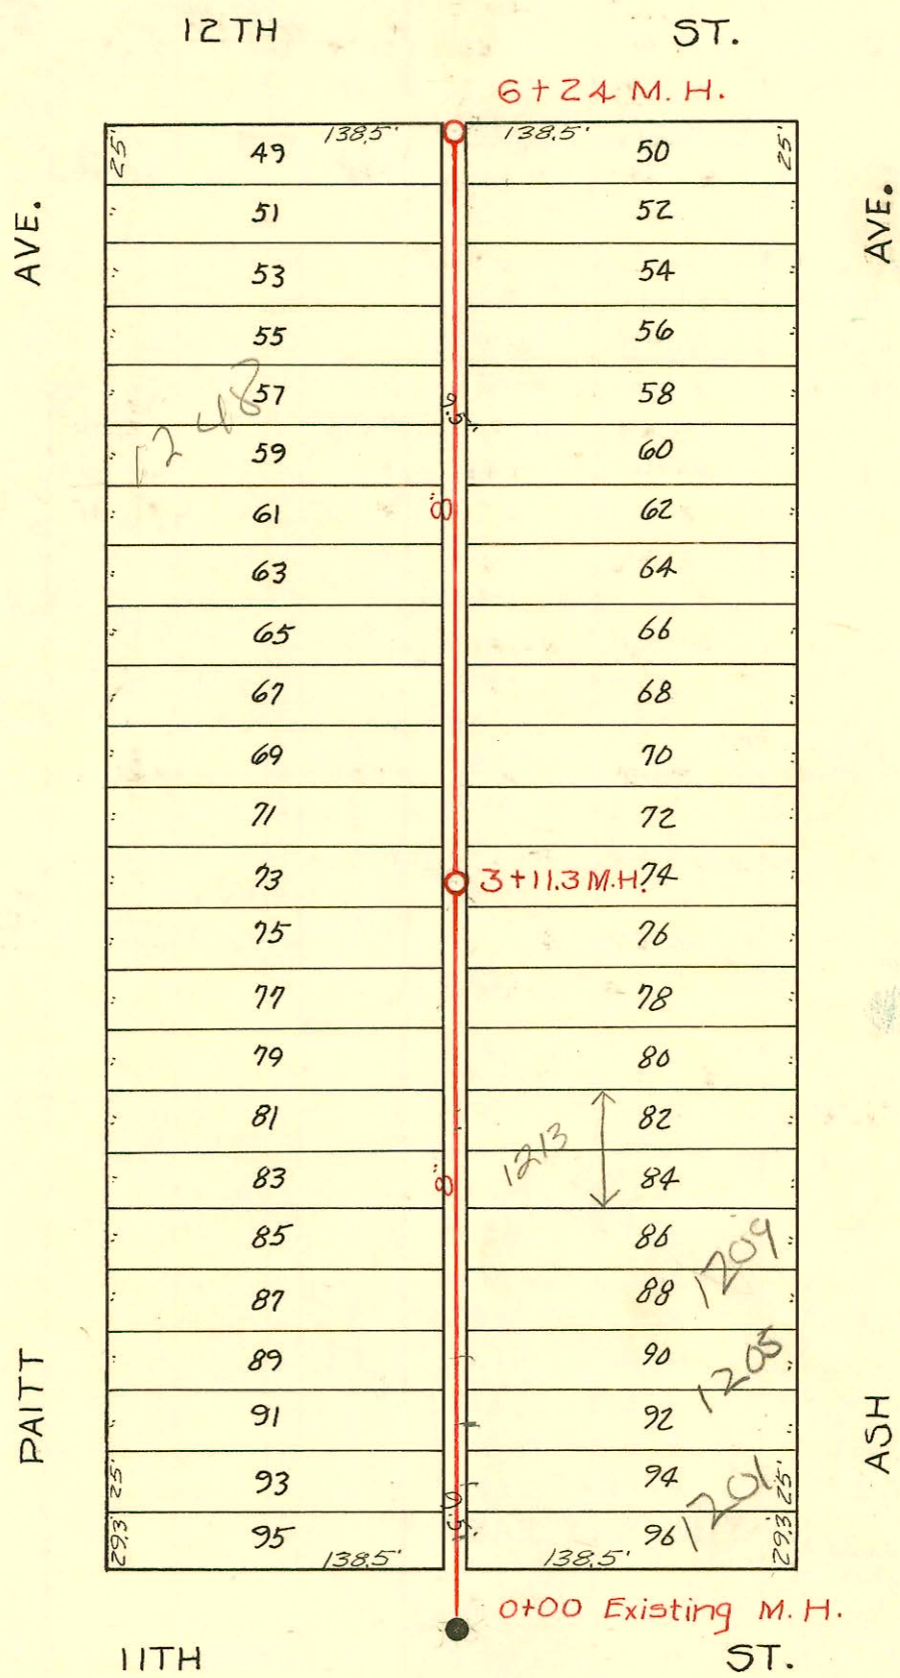 12TH ST.
6+24 M.H.
AVE.
AVE.
25' 49 138.5' 138.5' 50 25'
" 51 52 "
" 53 54 "
" 55 56 "
" 57 58 "
1248
" 59 60 "
" 61 8" 62 "
" 63 64 "
" 65 66 "
" 67 68 "
" 69 70 "
" 71 72 "
" 73 3+11.3 M.H. 74 "
" 75 76 "
" 77 78 "
" 79 80 "
" 81 82 "
1213
" 83 8" 84 "
" 85 86 "
1209
" 87 88 "
" 89 90 "
1205
" 91 92 "
25' 93 94 25'
1201
29.3' 95 138.5' 138.5' 96 29.3'
PAITT
ASH
0+00 Existing M.H.
11TH ST.